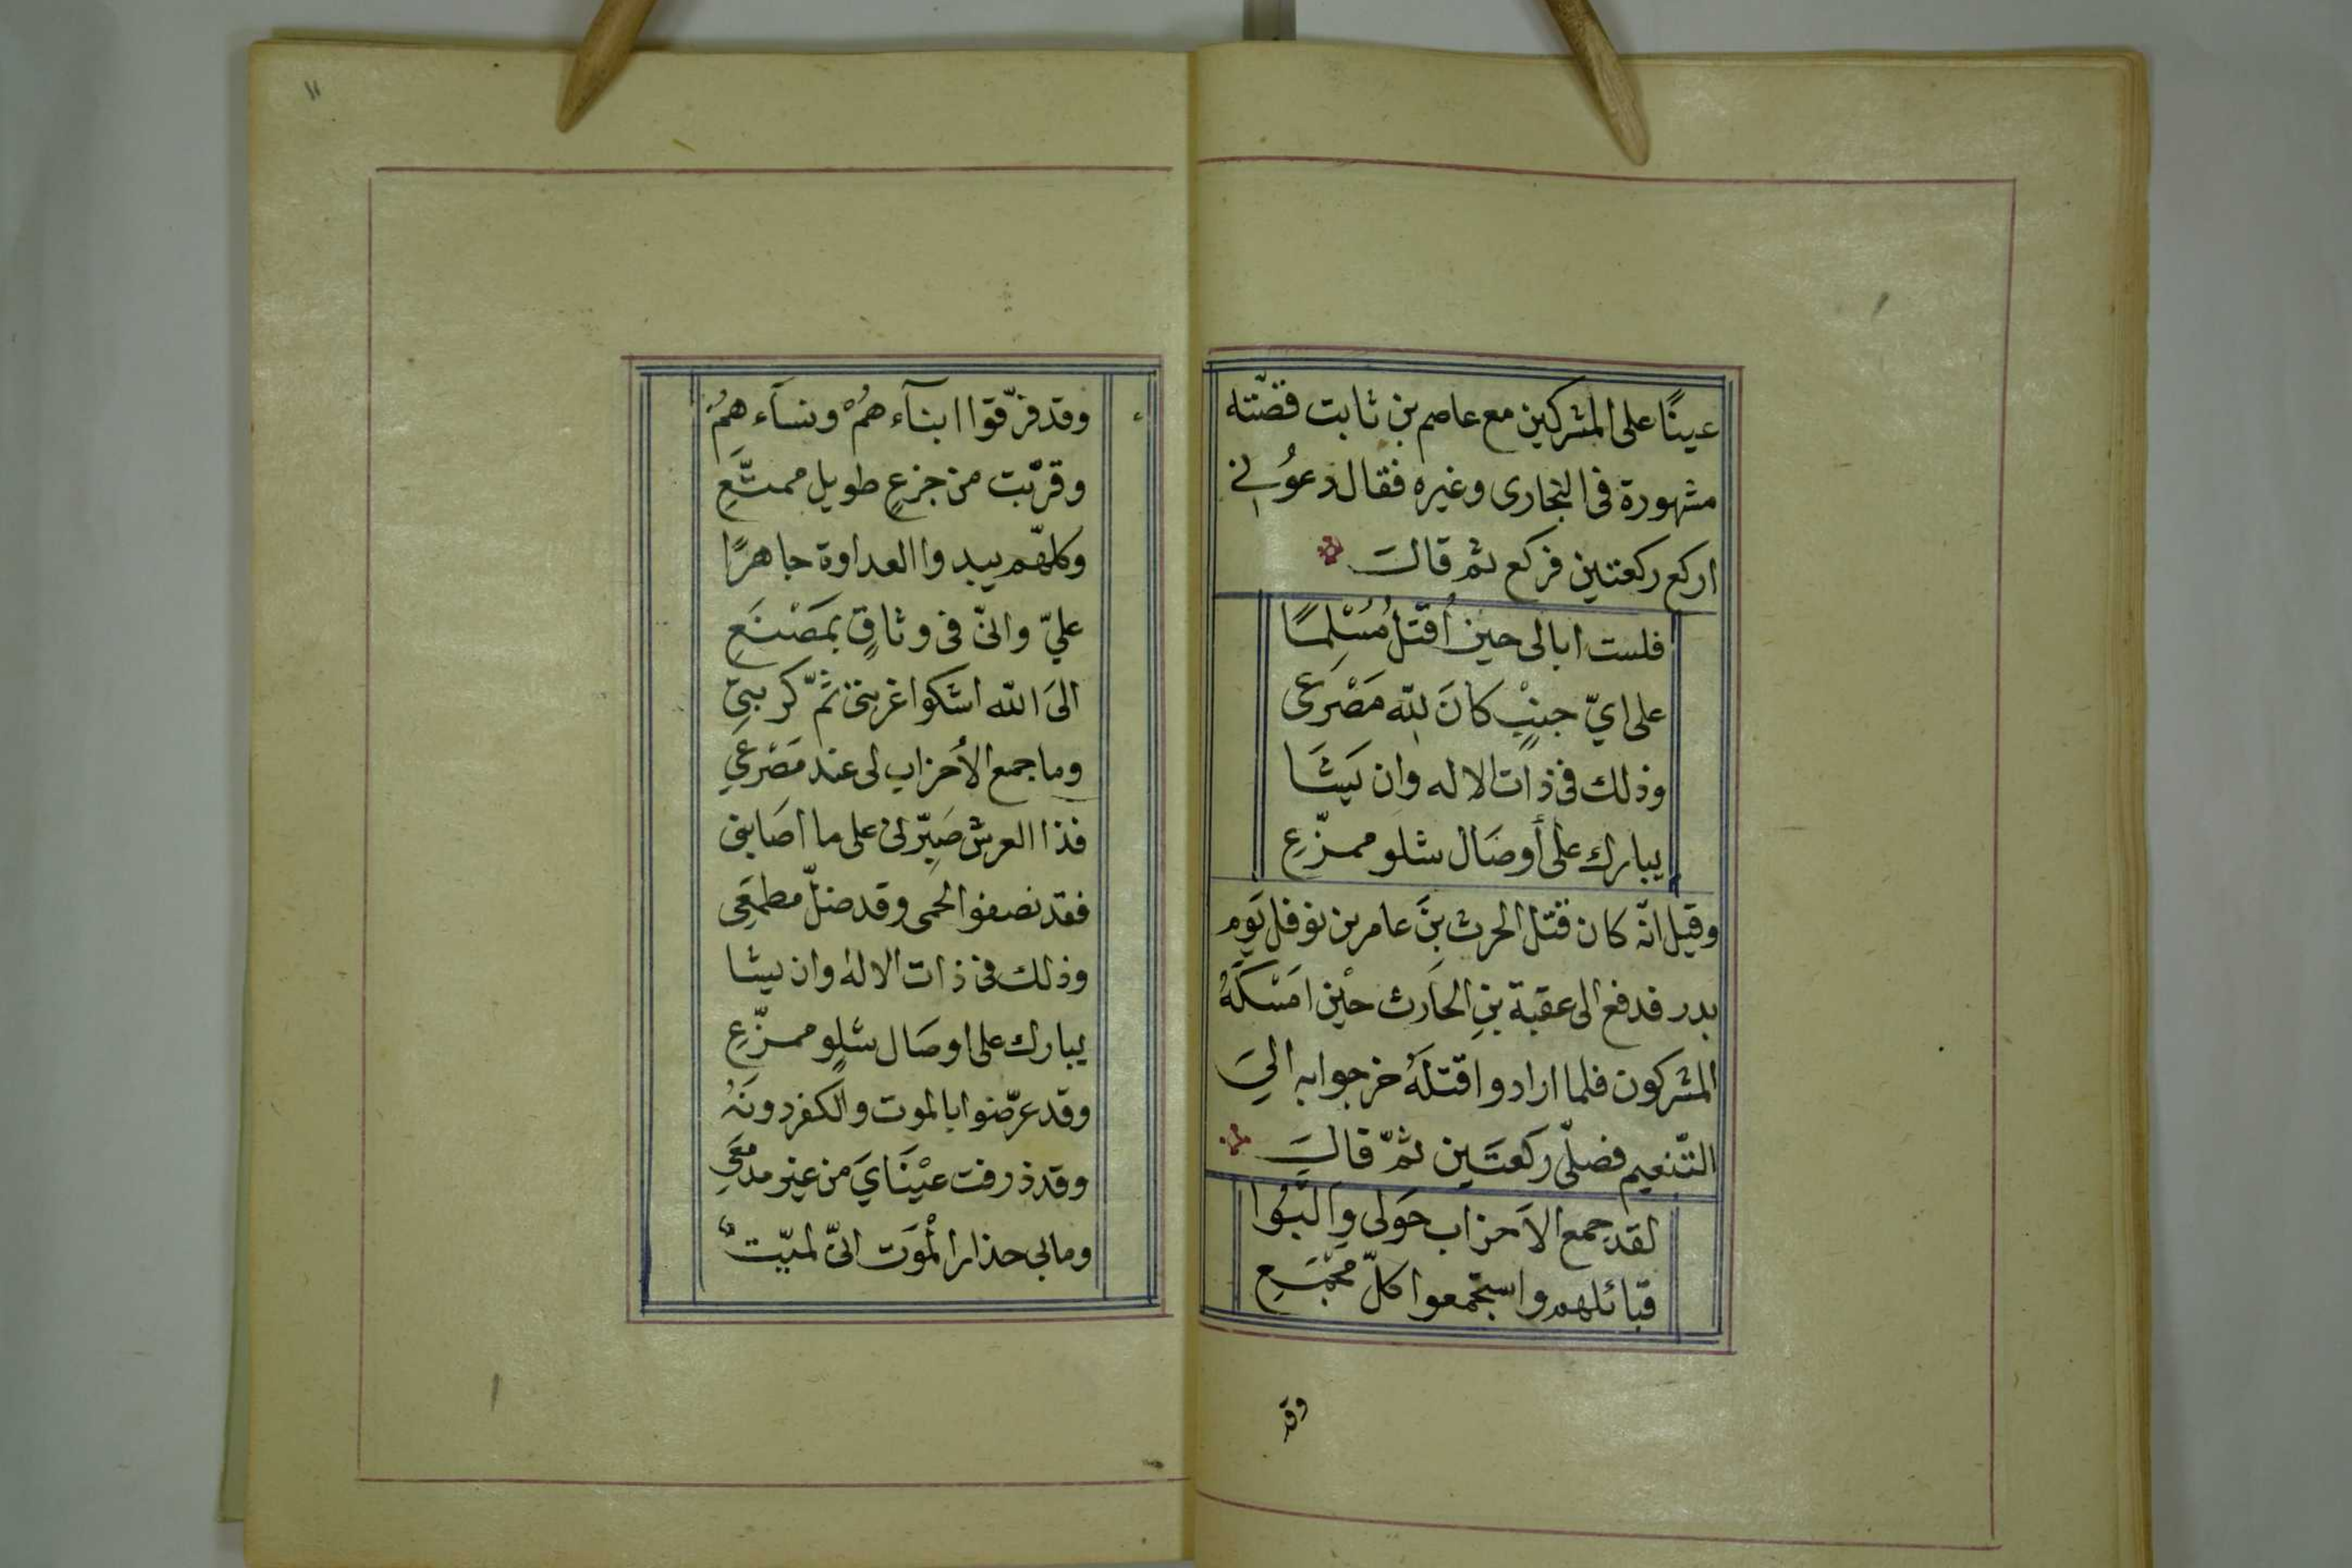 عينًا على المشركين مع عاصم بن ثابت قصّته
مشهورة فى البخارى وغيره فقال دعوُنى
اركع ركعتين فركع ثم قالَ
فلست ابالى حين اُقتلُ مُسْلِمًا
على ايّ جنبٍ كانَ للّه مَصْرَعى
وذلك فى ذات الاله وان يَشَا
يبارك على أوصَال شلو ممزّعِ
وقيل انّه كان قتل الحرث بنَ عامر بن نوفل يَوم
بدر فدفع الى عقبة بنِ الحَارث حيْن امَسْكَهُ
المشركون فلما ارادوا قتلَهُ خرجوا به الىَ
التّنعيم فصلّى ركعتَين ثمّ قالَ
لقد جمع الاَحزاب حَولى وَالَّبُوا
قبائلهم واستجمعوا كلّ مَجْمَعِ
وقد
١١
وقد فرّقوا ابنآء هُمْ ونسآء هِمُ
وقرّبت من جزعٍ طويل ممنَّعِ
وكلهّم يبدوا العداوة جاهرًا
عليّ وانّى فى وثاقٍ بمَصْنَعِ
الىَ اللّه اشكوا غربتى ثمَّ كربتى
وما جمع الأحزاب لى عند مَصْرَعي
فذا العرش صَبِرّ لى على ما اصَابنى
فقد بضعوا لحمى وقد ضلّ مطمَعِى
وذلك فى ذات الاله وان يشا
يبارك على اوصَال شلوٍ ممزّعِ
وقد عرّضوا بالموت والكفر دونَهُ
وقد ذرفت عيْنَايَ من غير مدمَعِي
ومابى حذار المْوَت انّى لميّت